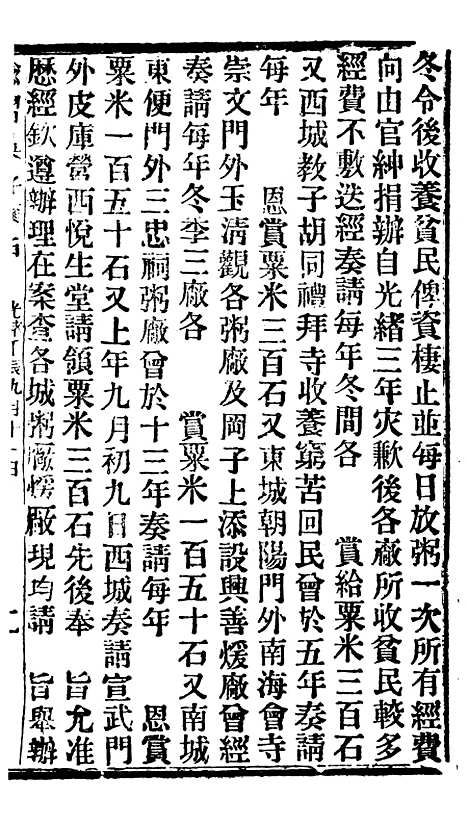 冬令後收養貧民俾資棲止並每日放粥一次所有經費
向由官紳捐辦自光緒三年灾歉後各廠所收貧民較多
經費不敷迭經奏請每年冬間各　賞給粟米三百石
又西城教子胡同禮拜寺收養窮苦回民曾於五年奏請
每年　恩賞粟米三百石又東城朝陽門外南海會寺
崇文門外玉清觀各粥廠及岡子上添設興善煖廠曾經
奏請每年冬季三廠各　賞粟米一百五十石又南城
東便門外三忠祠粥廠曾於十三年奏請每年　恩賞
粟米一百五十石又上年九月初九日西城奏請宣武門
外皮庫營西悅生堂請領粟米三百石先後奉　旨允准
歷經欽遵辦理在案查各城粥廠煖廠現均請　旨舉辦